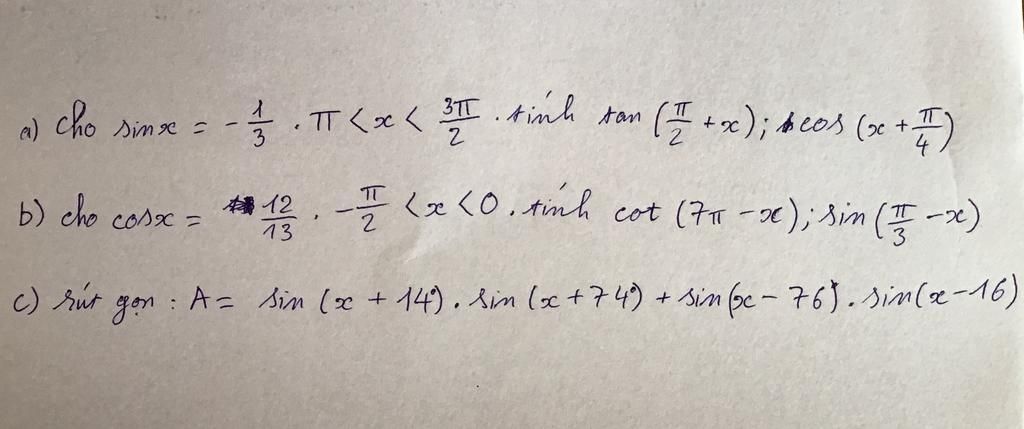 a) Cho sinx = -1/3 . π < x < 3π/2 . tính tan (π/2 + x); cos (x + π/4)
b) cho cosx = 12/13 . -π/2 < x < 0 . tính cot (7π - x); sin (π/3 - x)
c) rút gọn : A = sin (x + 14°) . sin (x + 74°) + sin (x - 76°) . sin(x - 16)